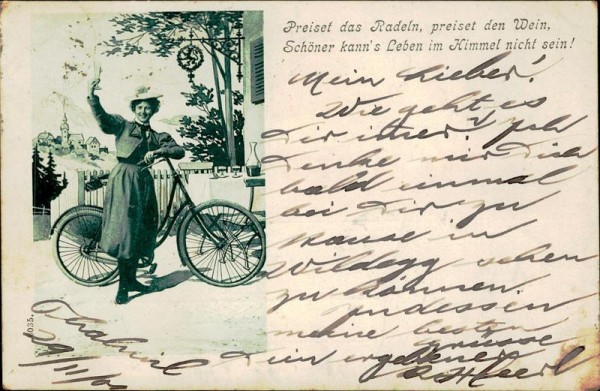 Preiset das Radeln, preiset den Wein,
Schöner kann's Leben im Himmel nicht sein!
Mein Lieber!
Wie geht es
Dir imer? Ich
denke mir Dich
bald einmal
bei Dir zu
Hause in
Wildegg sehen
zu können.
Indessen
meine besten
Grüsse
Dein ergebener
Thalwil
29/11/
1035.